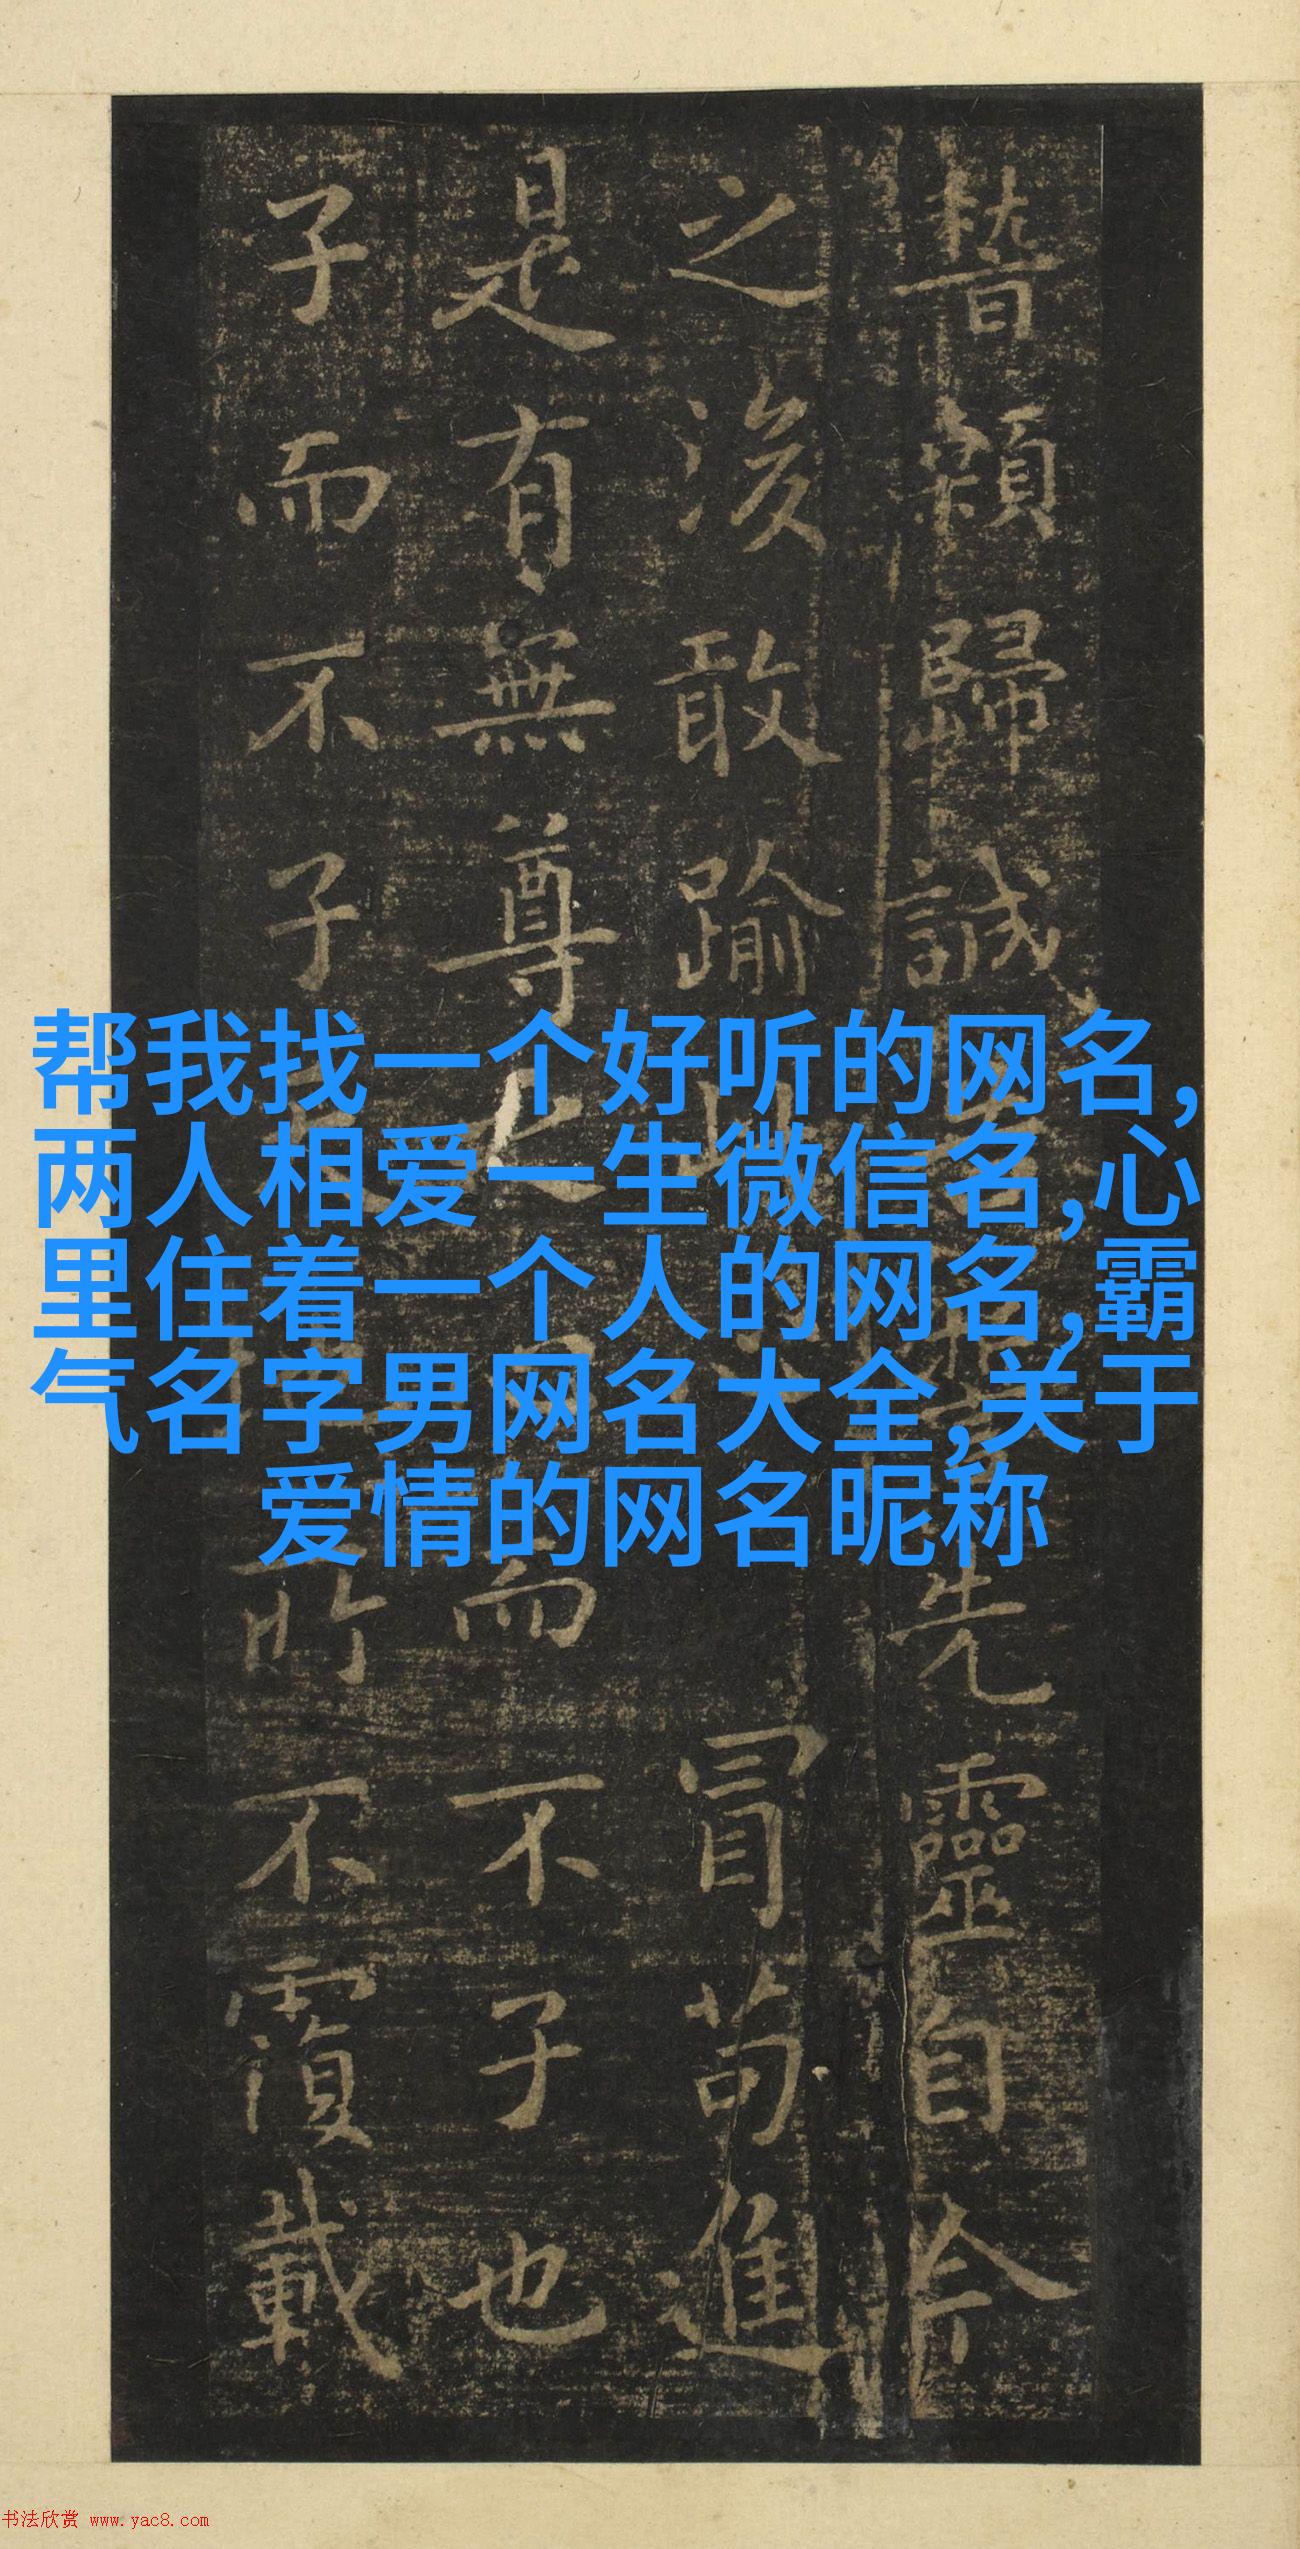 稽顙歸誠先靈自今
之後敢踰冒苟進
是有無尊而不子也
子而不子所不覆載
帮我找一个好听的网名,
两人相爱一生微信名,心
里住着一个人的网名,霸
气名字男网名大全,关于
爱情的网名昵称
书法欣赏 www.yac8.com